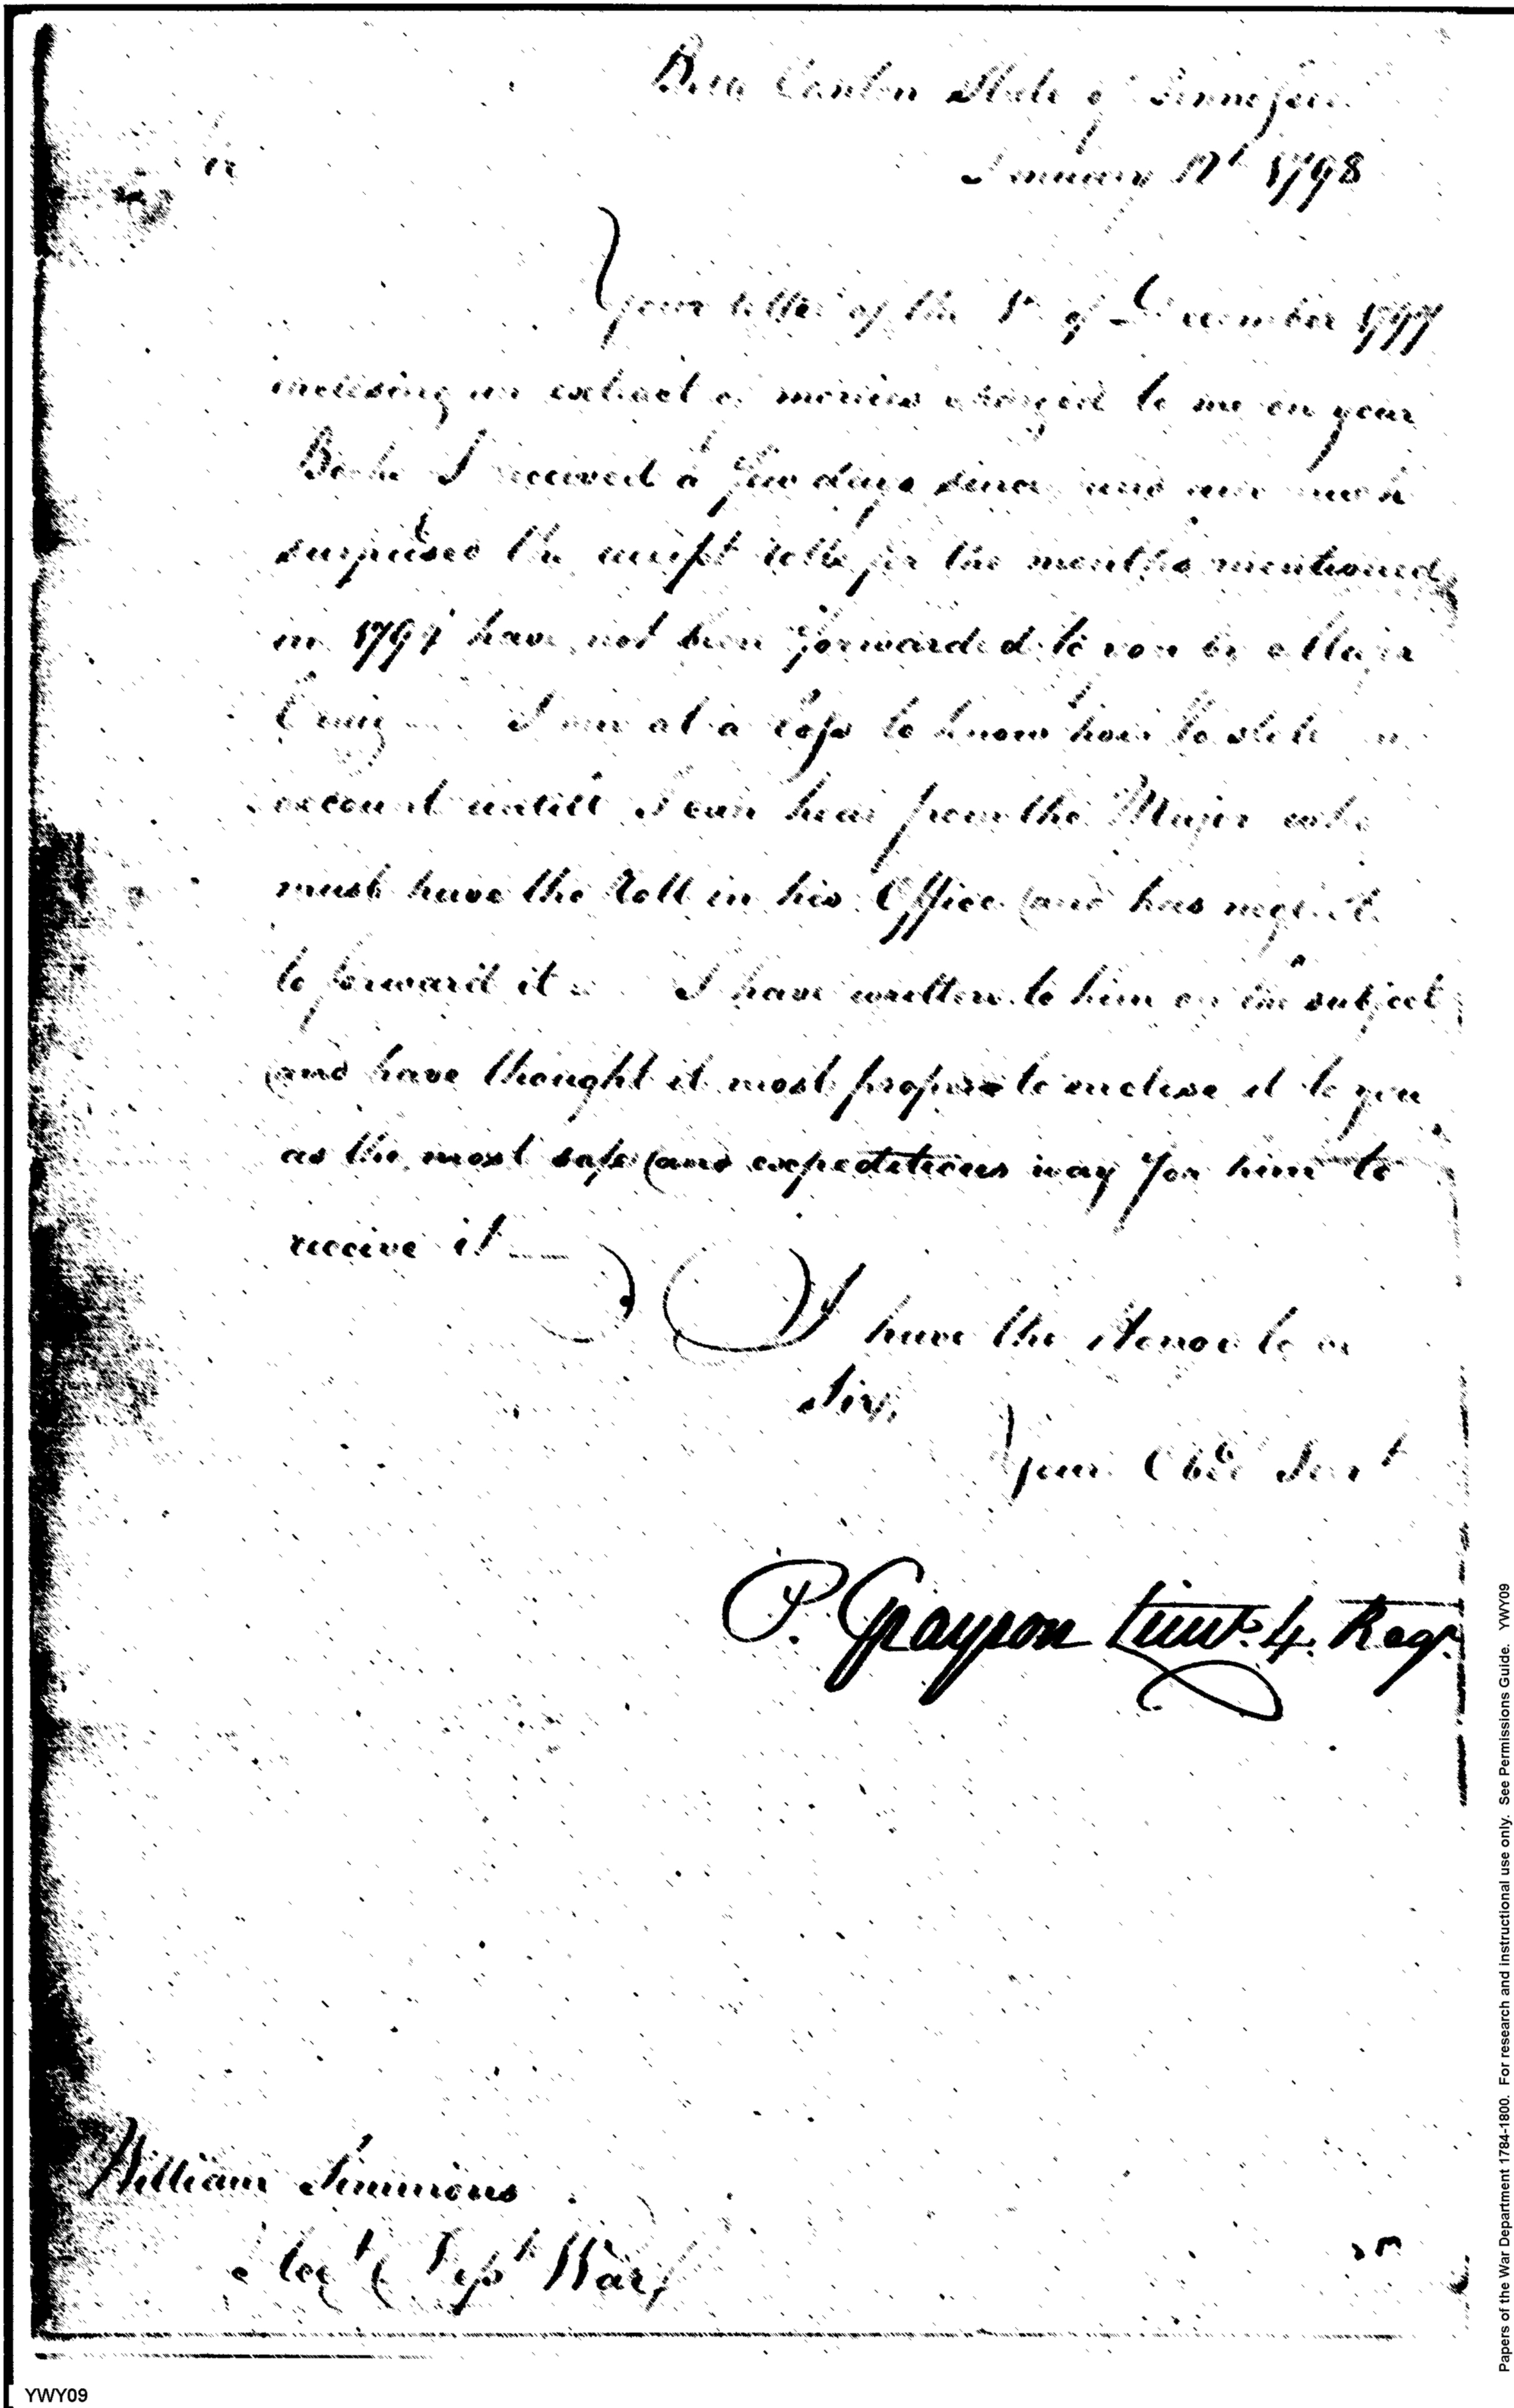 State of Tennessee
January 12t 1798
Your letter of the 1st of December 1797
inclosing an extract of monies charged to me on your
Books I received a few days since and am much
surprised the receipt rolls for the months mentioned
in 1794 have not been forwarded to you by Major
Craig I am at a loss to know how to state
account untill I can hear from the Major who
must have the Roll in his Office and has neglect
to forward it. I have written to him on the subject
and have thought it most proper to enclose it to you
as the most safe and expeditious way for him to
receive it
I have the Honor to be
Sir,
Your Obdt Servt
P. Grayson Lieut. 4. Regt.
William Simmons
Acct. Dept War
YWY09
Papers of the War Department 1784-1800. For research and instructional use only. See Permissions Guide. YWY09